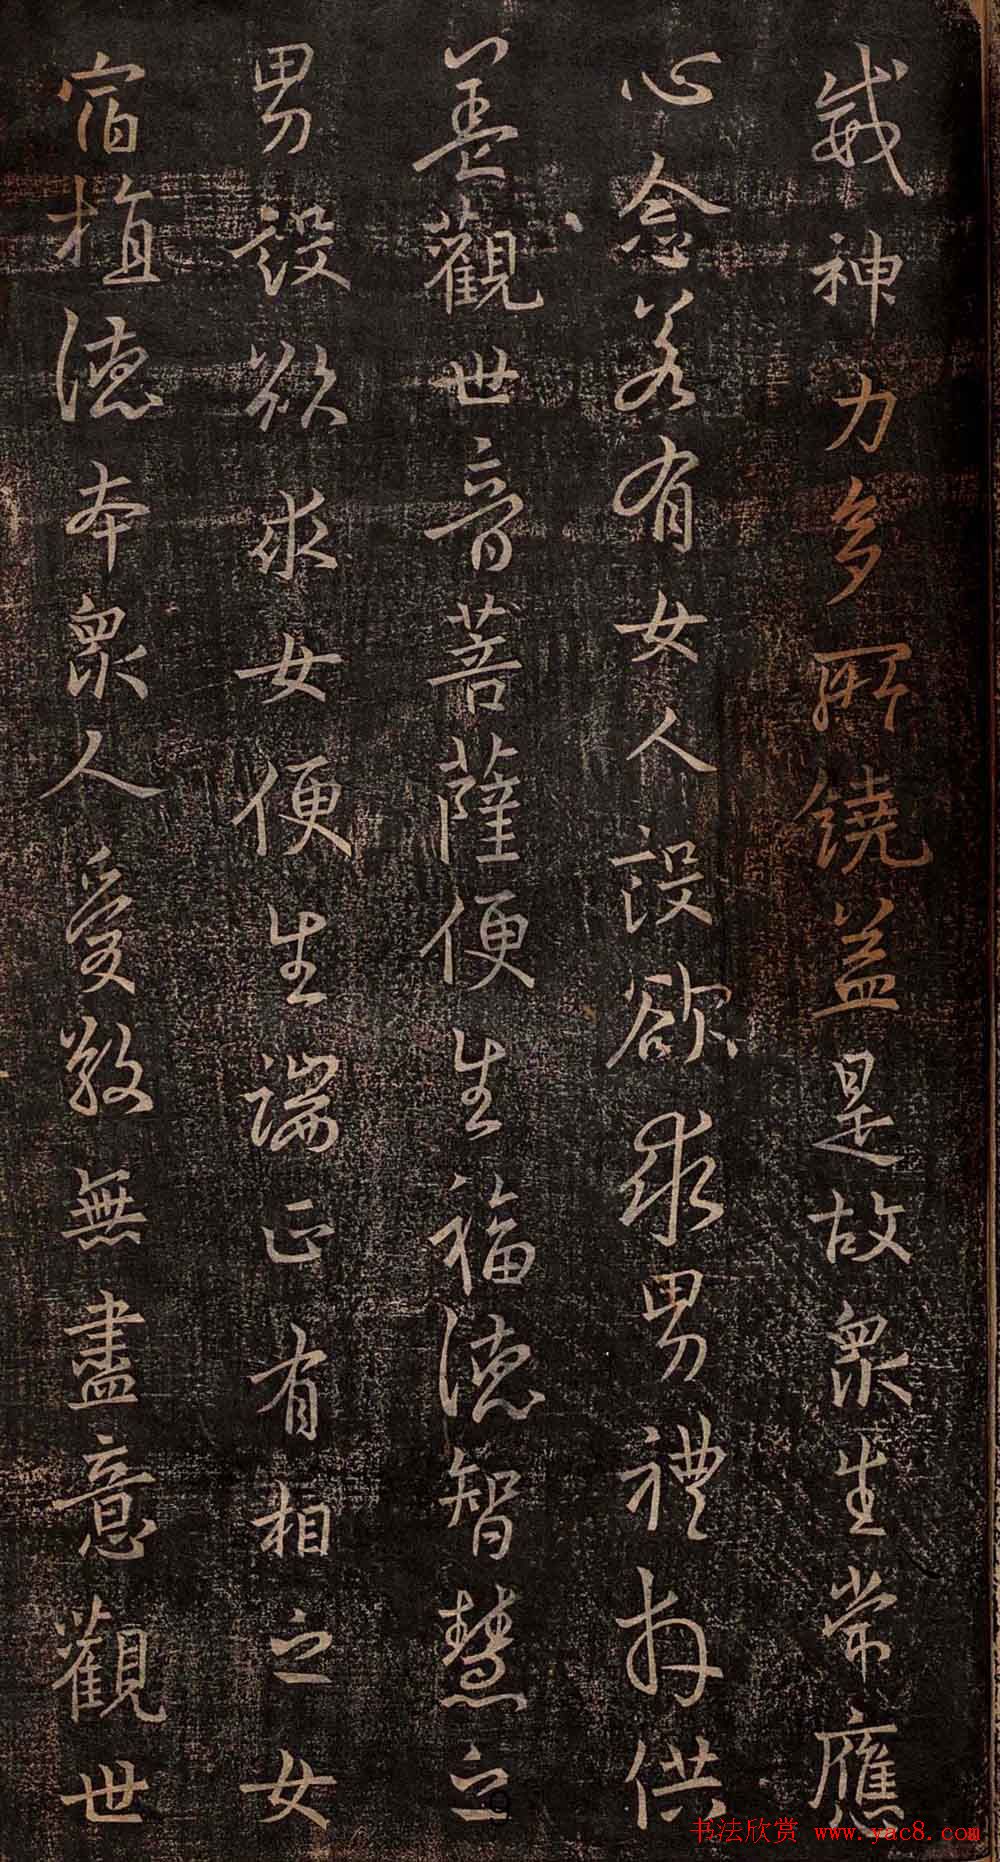 威神力多所饒益是故眾生常應
心念若有女人設欲求男禮拜供
養觀世音菩薩便生福德智慧之
男設欲求女便生端正有相之女
宿植德本眾人愛敬無盡意觀世
9
书法欣赏 www.yac8.com